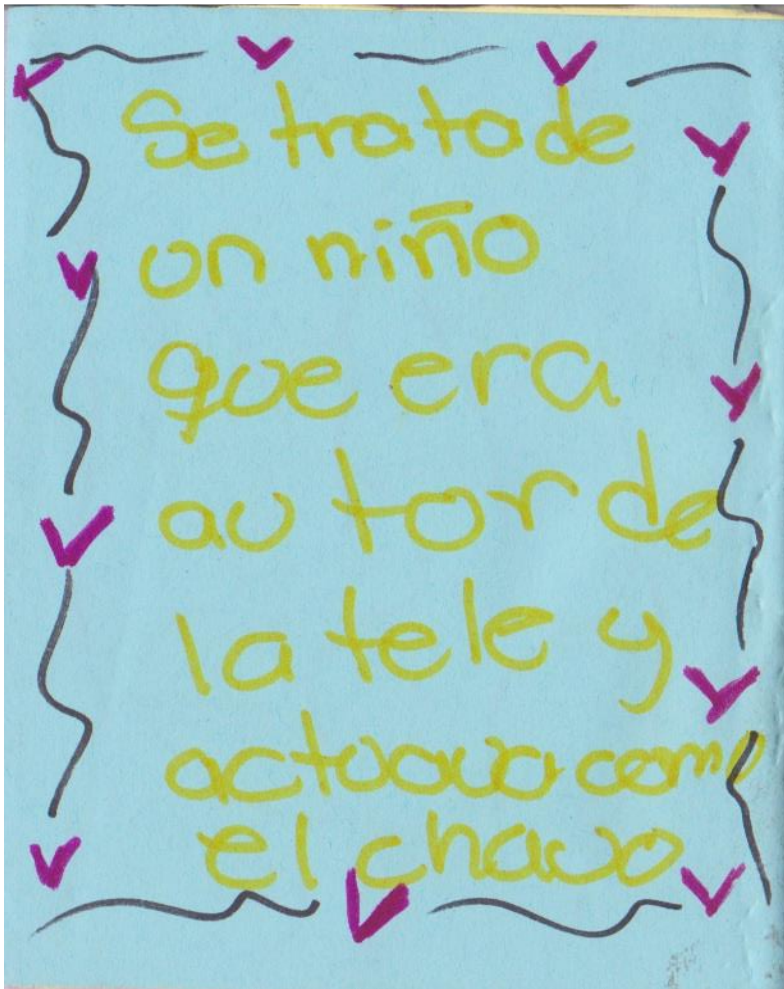 Se trata de
un niño
que era
autor de
la tele y
actuava como
el chavo